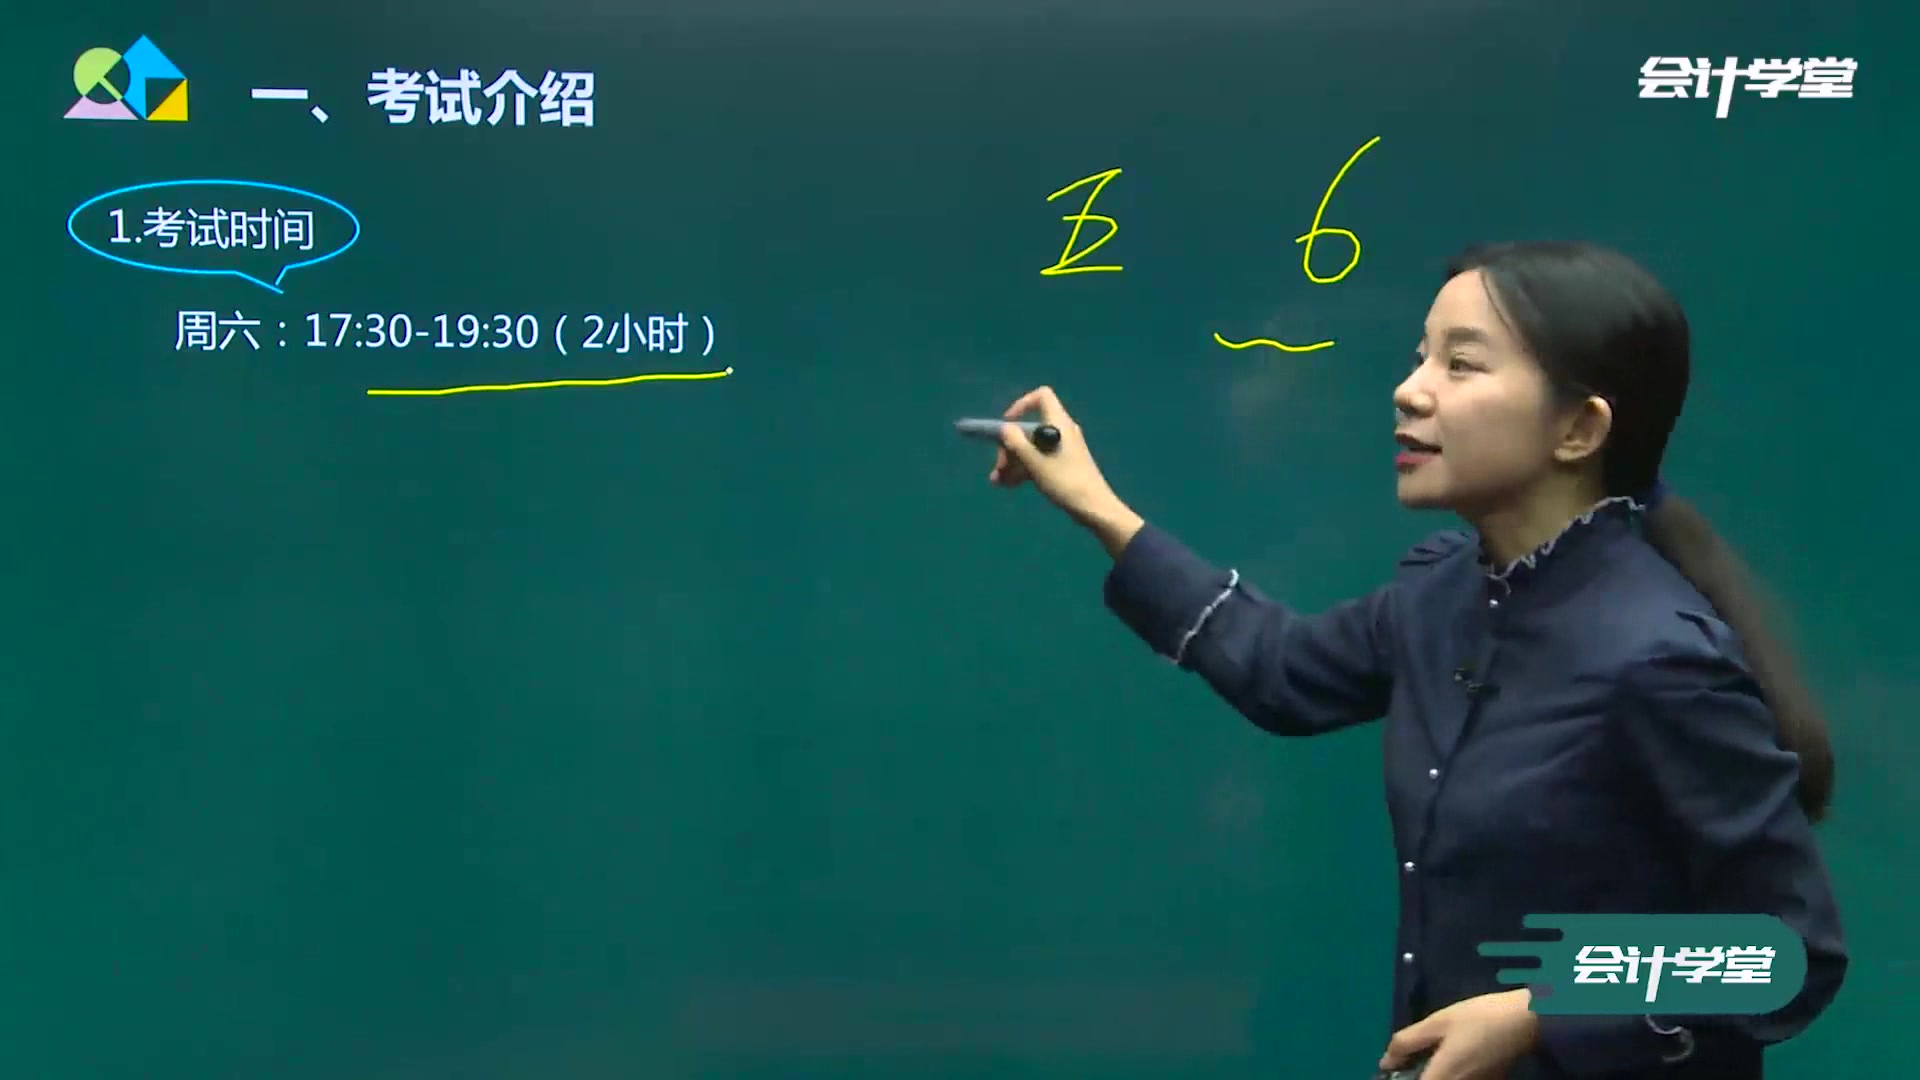 一、考试介绍
会计学堂
1.考试时间
五 6
周六：17:30-19:30（2小时）
会计学堂